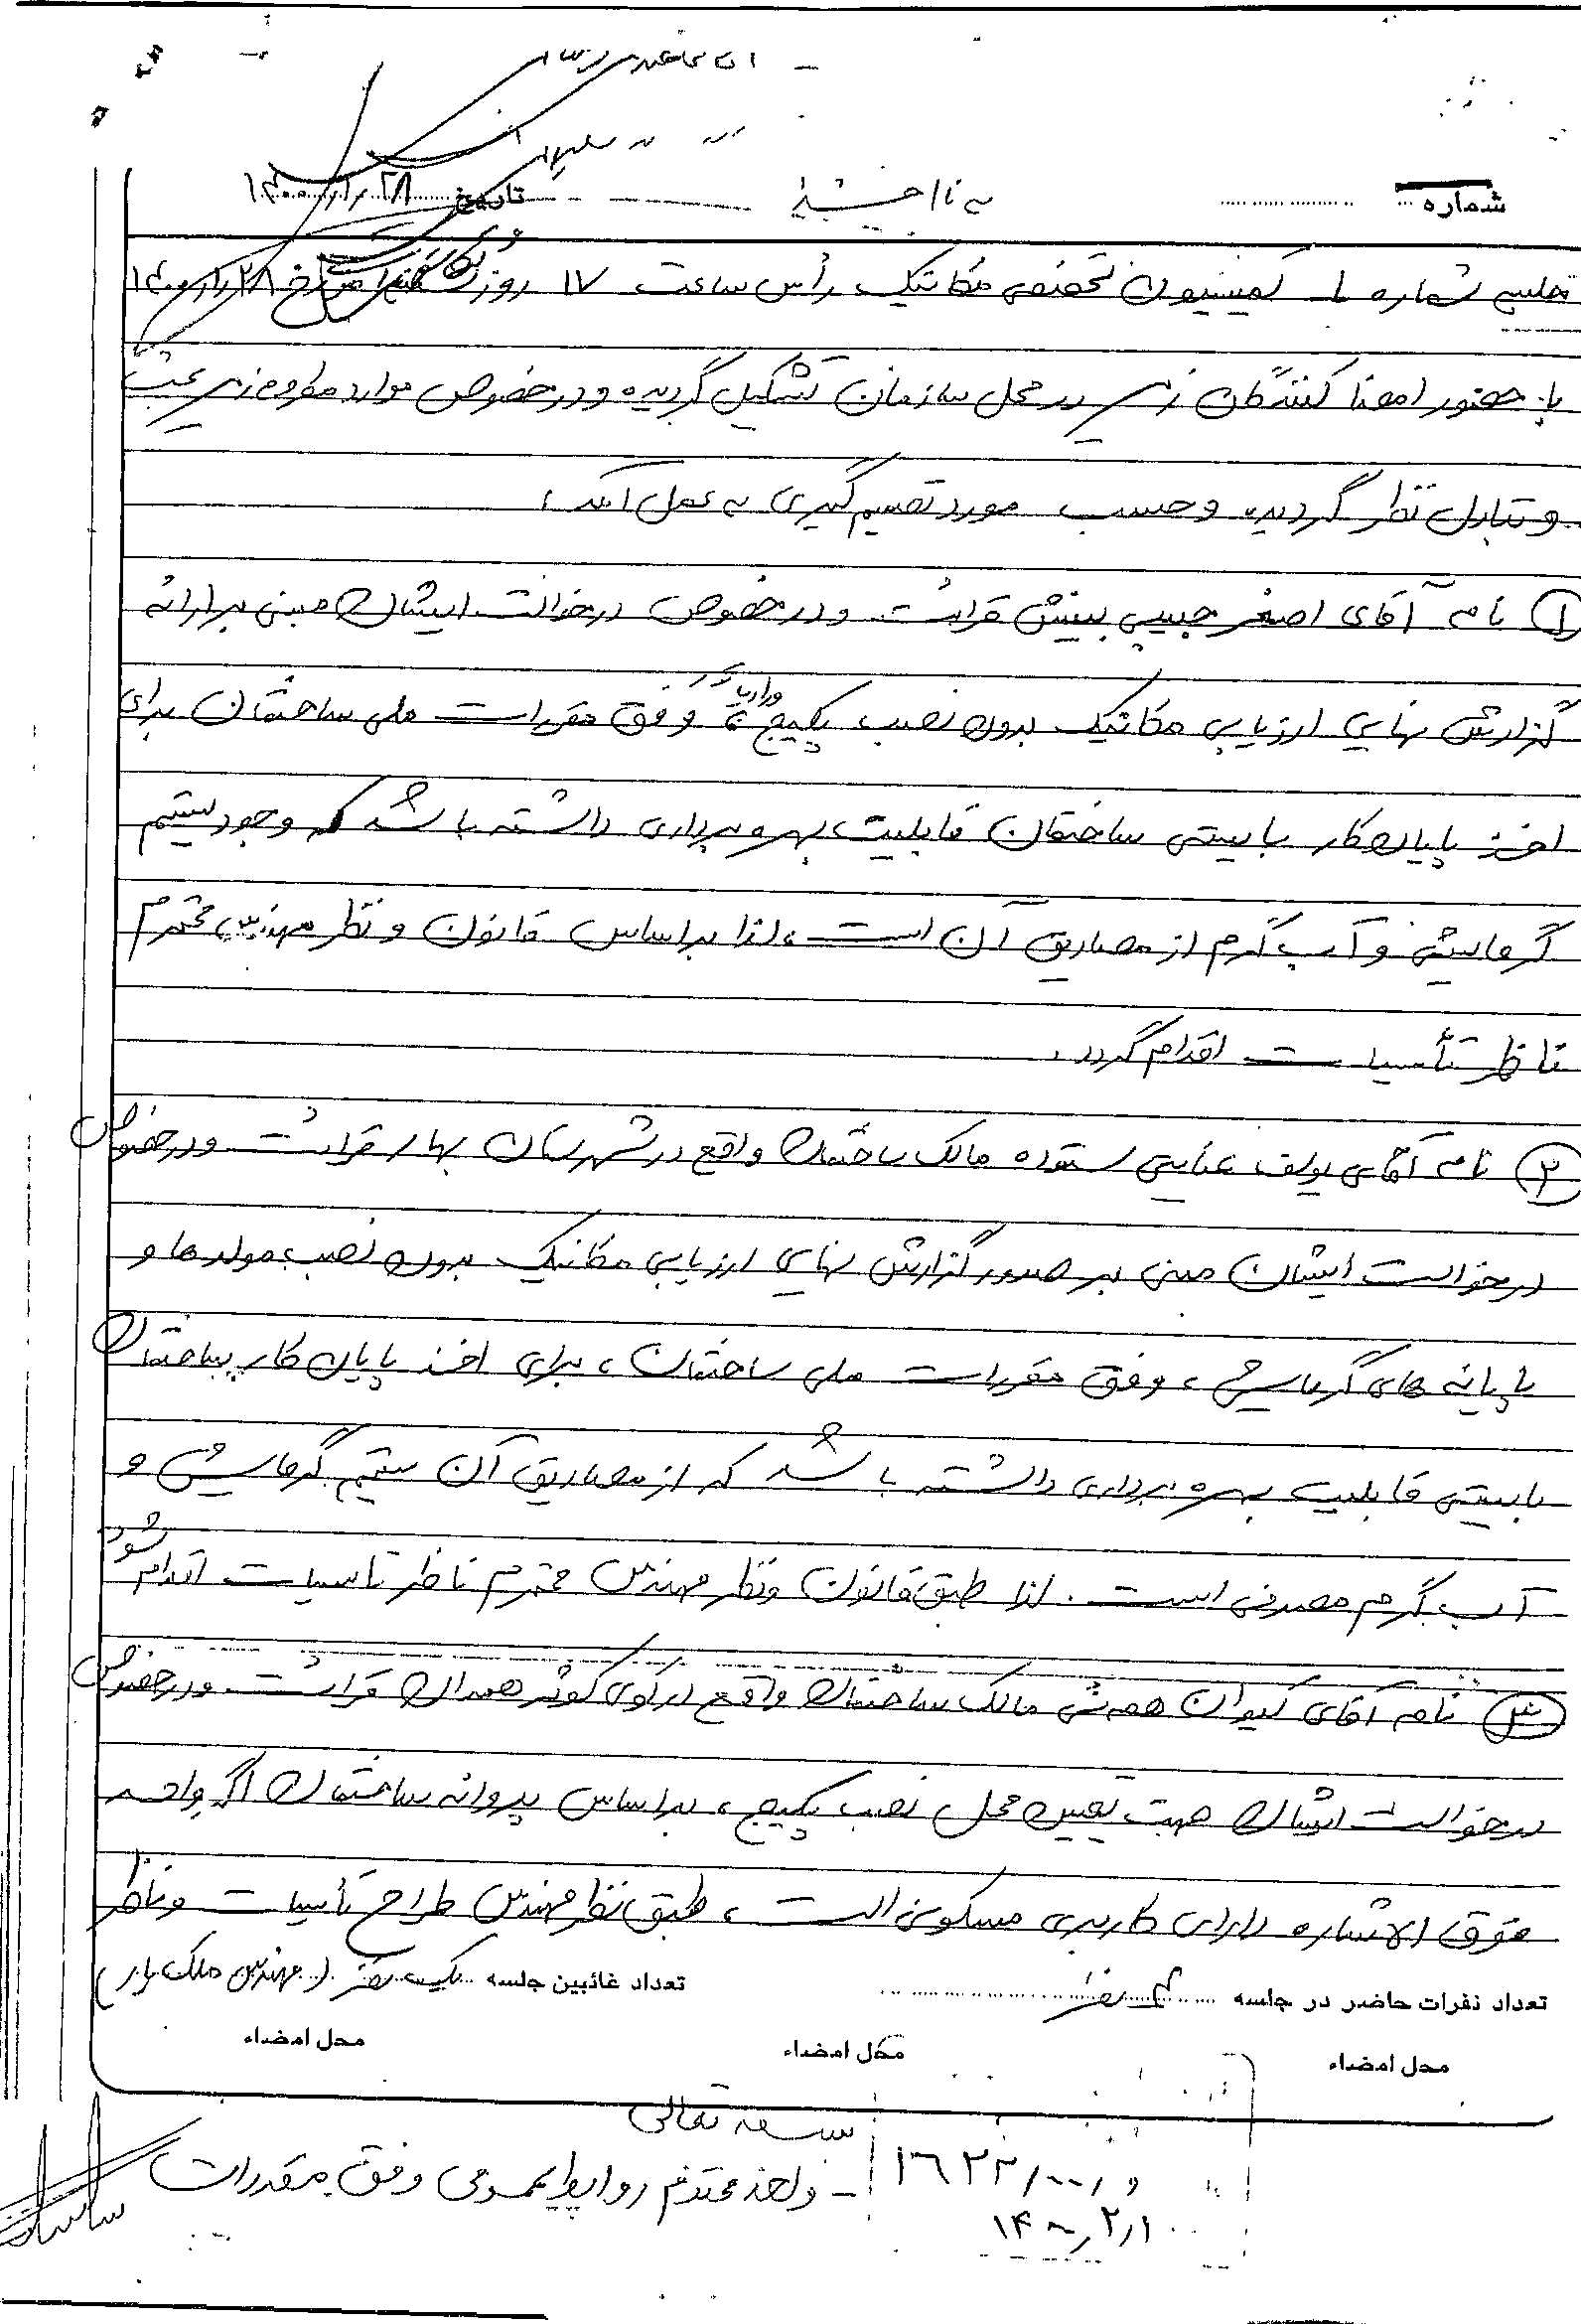 شماره
تاریخ ۱۴۰۰/۱/۲۸
جلسه شماره ۱ کمیسیون تخصصی مکانیک رأس ساعت ۱۷ روز مورخ ۱۴۰۰/۱/۲۸
با حضور امضا کنندگان زیر در محل سازمان تشکیل گردیده و در خصوص موارد مطروحه زیر بحث
و تبادل نظر گردید و حسب مورد تصمیم گیری به عمل آمد:
۱ نامه آقای اصغر حبیبی بینش قرائت و در خصوص درخواست ایشان مبنی بر ارائه
گزارش نهایی ارزیابی مکانیک بدون نصب پکیج و رادیاتور وفق مقررات ملی ساختمان برای
اخذ پایان کار بایستی ساختمان قابلیت بهره برداری داشته باشد که وجود سیستم
گرمایشی و آب گرم از مصادیق آن است، لذا براساس قانون و نظر مهندس محترم
ناظر تأسیسات اقدام گردد.
۲ نامه آقای یوسف عنایتی ستوده مالک ساختمان واقع در شهرستان بهار قرائت و در خصوص
درخواست ایشان مبنی بر صدور گزارش نهایی ارزیابی مکانیک بدون نصب مولدها و
پایانه های گرمایشی، وفق مقررات ملی ساختمان، برای اخذ پایان کار ساختمان
بایستی قابلیت بهره برداری داشته باشد که از مصادیق آن سیستم گرمایشی و
آب گرم مصرفی است. لذا طبق قانون و نظر مهندس محترم ناظر تاسیسات اقدام شود
۳ نامه آقای کیوان مالک ساختمان واقع در کوی کوثر همدان قرائت و در خصوص
درخواست ایشان جهت تعیین محل نصب پکیج، براساس پروانه ساختمان اگر واحد
فوق الاشاره دارای کاربری مسکونی است، طبق نظر مهندس طراح تأسیسات و ناظر
تعداد نفرات حاضر در جلسه ۴ نفر تعداد غائبین جلسه یک نفر (مهندس ملک یار)
محل امضاء محل امضاء محل امضاء
بسمه تعالی
- واحد محترم روابط عمومی وفق مقررات
و/۱۶۲۲/۰۰
۱۴۰۰/۲/۱